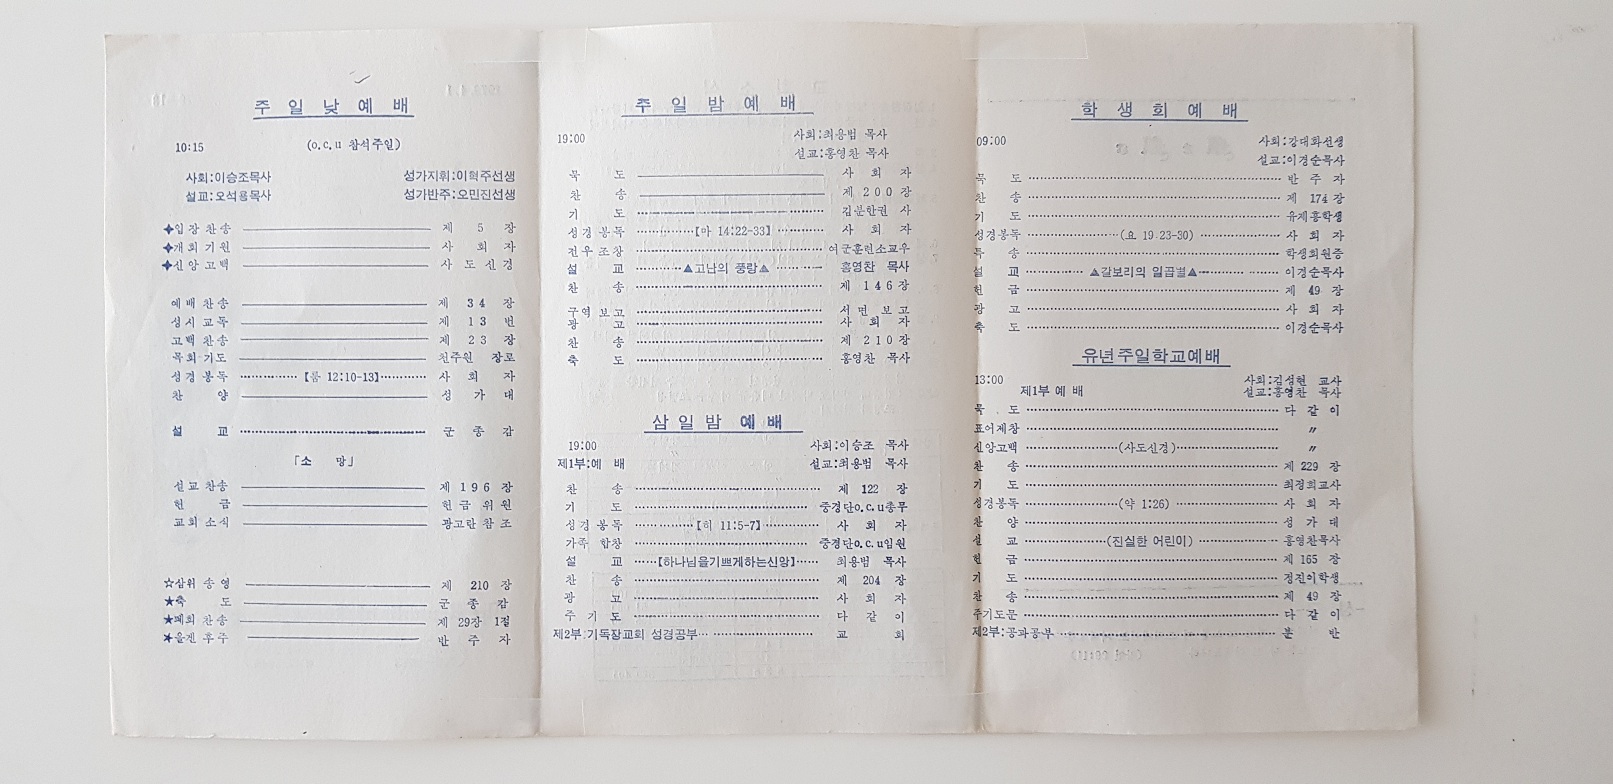 주 일 낮 예 배
10:15 (o.c.u 참석주일)
사회:이승조목사 성가지휘:이혁주선생
설교:오석용목사 성가반주:오민진선생
입장 찬송 제 5 장
개회 기원 사 회 자
신앙 고백 사 도 신 경
예배 찬송 제 3 4 장
성시 교독 제 1 3 번
고백 찬송 제 2 3 장
목회 기도 천주원 장로
성경 봉독 【롬 12:10-13】 사 회 자
찬 양 성 가 대
설 교 군 종 감
「소 망」
설교 찬송 제 1 9 6 장
헌 금 헌 금 위 원
교회 소식 광고란 참조
☆삼위 송영 제 210 장
★축 도 군 종 감
★폐회 찬송 제 29장 1절
★올겐 후주 반 주 자
주 일 밤 예 배
19:00 사회:최용범 목사
설교:홍영찬 목사
묵 도 사 회 자
찬 송 제 2 0 0 장
기 도 김분한권 사
성경 봉독 【마 14:22-33】 사 회 자
전우 조창 여군훈련소교우
설 교 ▲고난의 풍랑▲ 홍영찬 목사
찬 송 제 1 4 6 장
구역 보고 서 면 보 고
광 고 사 회 자
찬 송 제 2 1 0 장
축 도 홍영찬 목사
삼 일 밤 예 배
19:00 사회:이승조 목사
제1부:예 배 설교:최용범 목사
찬 송 제 122 장
기 도 중경단o.c.u총무
성경 봉독 【히 11:5-7】 사 회 자
가족 합창 중경단o.c.u임원
설 교 【하나님을기쁘게하는신앙】 최용범 목사
찬 송 제 204 장
광 고 사 회 자
주 기 도 다 같 이
제2부:기독장교회 성경공부 교 회
학 생 회 예 배
09:00 사회:강대화선생
설교:이경순목사
묵 도 반 주 자
찬 송 제 174 장
기 도 유제흥학생
성경봉독 (요 19.23-30) 사 회 자
특 송 학생회원중
설 교 ▲갈보리의 일곱별▲ 이경순목사
헌 금 제 49 장
광 고 사 회 자
축 도 이경순목사
유년주일학교예배
13:00 사회:김성현 교사
제1부 예 배 설교:홍영찬 목사
묵 도 다 같 이
표어제창 〃
신앙고백 (사도신경) 〃
찬 송 제 229 장
기 도 최경희교사
성경봉독 (약 1:26) 사 회 자
찬 양 성 가 대
설 교 (진실한 어린이) 홍영찬목사
헌 금 제 165 장
기 도 정진이학생
찬 송 제 49 장
주기도문 다 같 이
제2부:공과공부 분 반